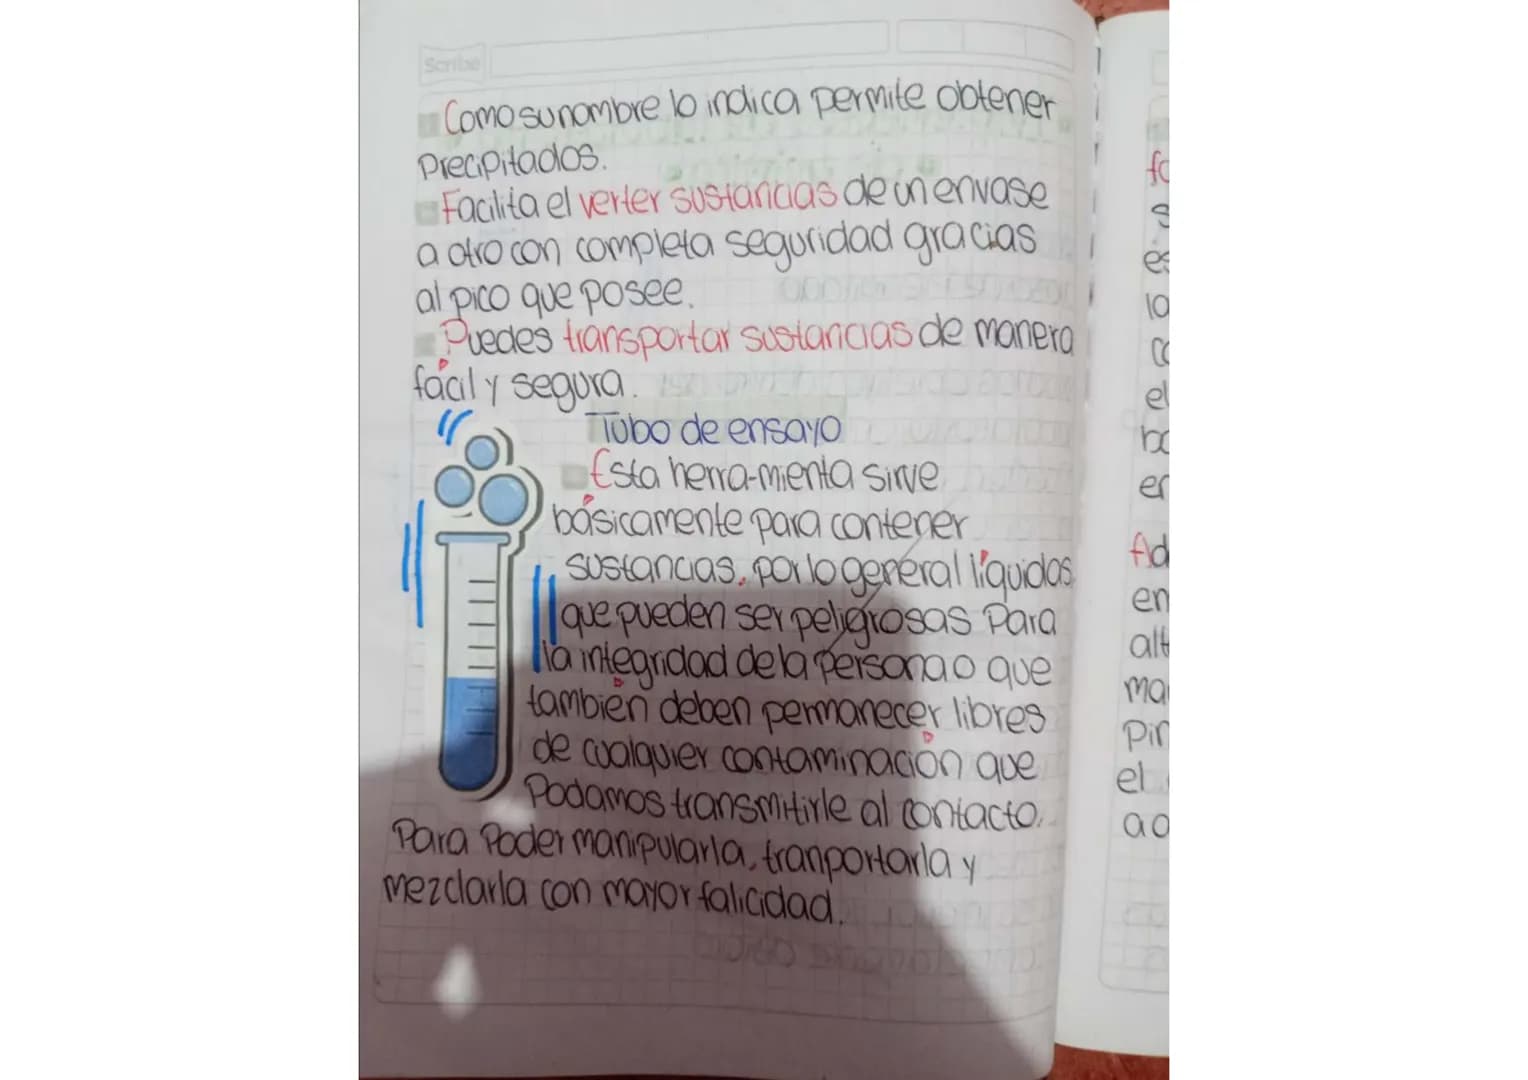 Scribe
Como su nombre lo indica permite obtener
Precipitados.
Facilita el verter sustancias de un envase
a otro con completa seguridad gracias
al pico que posee.
Puedes transportar sustancias de manera
fácil y segura.
Tubo de ensayo
Esta herra-mienta sirve
básicamente para contener
sustancias, por lo general líquidos
que pueden ser peligrosas Para
la integridad de la Persona o que
también deben permanecer libres
de cualquier contaminación que
Podamos transmitirle al contacto.
Para Poder manipularla, tranportarla y
mezclarla con mayor falicidad.
fo
s
es
la
co
el
bo
en
Ad
en
alt
ma
Pin
el
ao